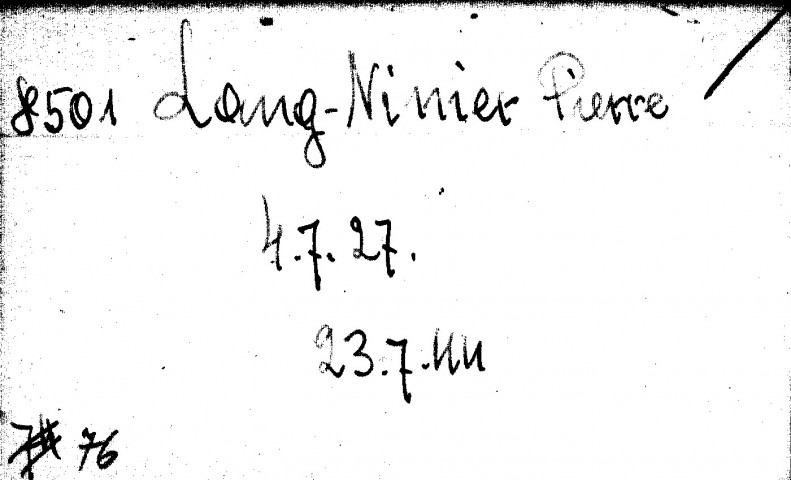 8501 Lang-Ninier Pierre
4.7.27.
23.7.44
76